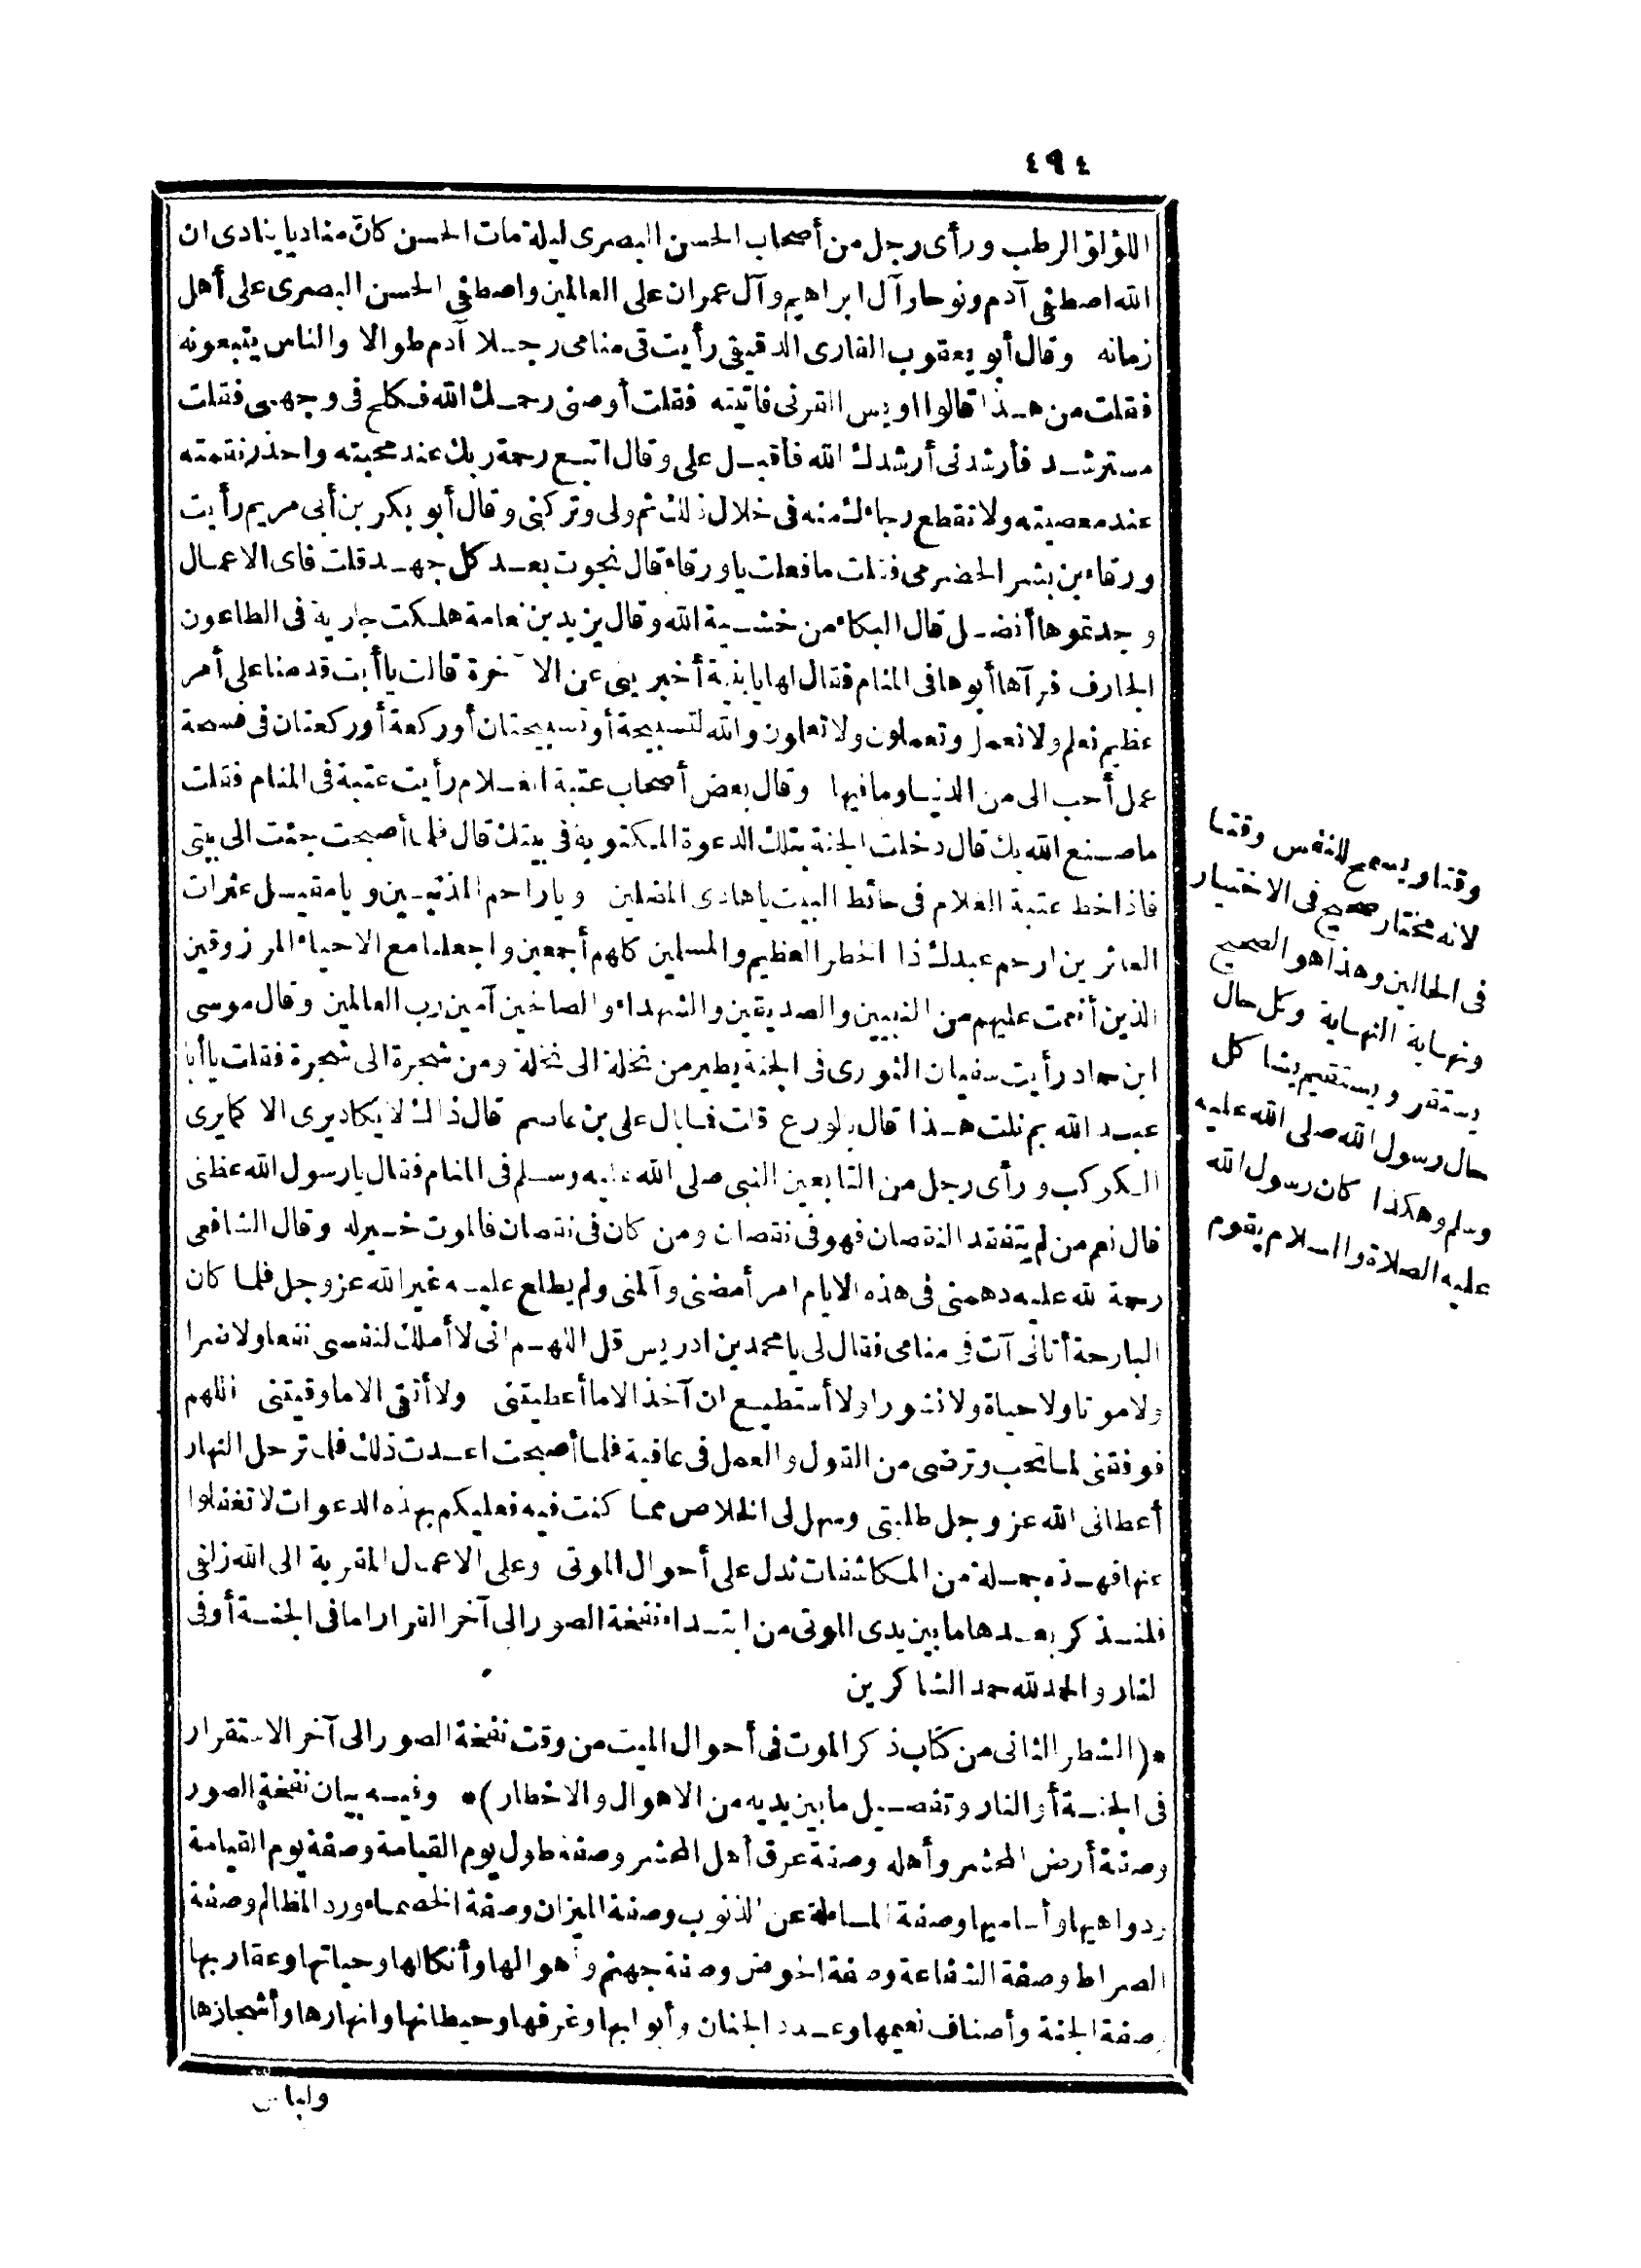 ٤٩٤
اللؤلؤ الرطب ورأى رجل من أصحاب الحسن البصرى ليلة مات الحسن كان مناديا ينادى ان
الله اصطفى آدم ونوحا وآل ابراهيم وآل عمران على العالمين واصطفى الحسن البصرى على أهل
زمانه وقال أبو يعقوب القارى الدقيقى رأيت فى منامى رجلا آدم طوالا والناس يتبعونه
فقلت من هذا قالوا اويس القرنى فاتيته فقلت أوصنى رحمك الله فكلح فى وجهى فقلت
مسترشد فأرشدنى أرشدك الله فأقبل على وقال اتبع رحمة ربك عند محبته واحذر نقمته
عند معصيته ولا تقطع رجاءك منه فى خلال ذلك ثم ولى وتركنى وقال أبو بكر بن أبى مريم رأيت
ورقاء بن بشر الحضرمى فقلت ما فعلت يا ورقاء قال نجوت بعد كل جهد قلت فاى الاعمال
وجدتموها أفضل قال البكاء من خشية الله وقال يزيد بن نعامة هلكت جارية فى الطاعون
الجارف فرآها أبوها فى المنام فقال لها يا بنية أخبرينى عن الآخرة قالت يا أبت قدمنا على أمر
عظيم نعلم ولا نعمل وتعملون ولا تعلمون والله لتسبيحة أو تسبيحتان أو ركعة أو ركعتان فى فسحة
عمل أحب الى من الدنيا وما فيها وقال بعض أصحاب عتبة الغلام رأيت عتبة فى المنام فقلت
ما صنع الله بك قال دخلت الجنة بتلك الدعوة المكتوبة فى بيتك قال فلما أصبحت جئت الى بيتى
فاذا خط عتبة الغلام فى حائط البيت يا هادى المضلين ويا راحم المذنبين ويا مقيل عثرات
العاثرين ارحم عبدك ذا الخطر العظيم والمسلمين كلهم أجمعين واجعلنا مع الاحياء المرزوقين
الذين أنعمت عليهم من النبيين والصديقين والشهداء والصالحين آمين رب العالمين وقال موسى
ابن حماد رأيت سفيان الثورى فى الجنة يطير من نخلة الى نخلة ومن شجرة الى شجرة فقلت يا أبا
عبد الله بم نلت هذا قال بالورع قلت فما بال على بن عاصم قال ذاك لا يكاد يرى الا كما يرى
الكوكب ورأى رجل من التابعين النبى صلى الله عليه وسلم فى المنام فقال يا رسول الله عظنى
قال نعم من لم يتفقد النقصان فهو فى نقصان ومن كان فى نقصان فالموت خير له وقال الشافعى
رحمة لله عليه دهمنى فى هذه الايام امر أمضنى وآلمنى ولم يطلع عليه غير الله عز وجل فلما كان
البارحة أتانى آت فى منامى فقال لى يا محمد بن ادريس قل اللهم انى لا أملك لنفسى نفعا ولا ضرا
ولا موتا ولا حياة ولا نشورا ولا أستطيع ان آخذ الا ما أعطيتنى ولا أتقى الا ما وقيتنى اللهم
فوفقنى لما تحب وترضى من القول والعمل فى عافية فلما أصبحت اعدت ذلك فلما ترحل النهار
أعطانى الله عز وجل طلبتى وسهل لى الخلاص مما كنت فيه فعليكم بهذه الدعوات لا تغفلوا
عنها فهذه جملة من المكاشفات تدل على أحوال الموتى وعلى الاعمال المقربة الى الله زلفى
فلنذكر بعدها ما بين يدى الموتى من ابتداء نفخة الصور الى آخر القرار اما فى الجنة أو فى
لنار والحمد لله حمد الشاكرين
*(الشطر الثانى من كتاب ذكر الموت فى أحوال الميت من وقت نفخة الصور الى آخر الاستقرار
فى الجنة أو النار وتفصيل ما بين يديه من الاهوال والاخطار)* وفيه بيان نفخة الصور
وصفة أرض المحشر وأهله وصفة عرق أهل المحشر وصفة طول يوم القيامة وصفة يوم القيامة
ودواهيها وأساميها وصفة المساءلة عن الذنوب وصفة الميزان وصفة الخصماء ورد المظالم وصفة
الصراط وصفة الشفاعة وصفة الحوض وصفة جهنم وأهوالها وأنكالها وحياتها وعقاربها
وصفة الجنة وأصناف نعيمها وعدد الجنان وأبوابها وغرفها وحيطانها وانهارها وأشجارها
ولباس
وقتا ويسمح للنفس وقتا
لانه مختار صحيح فى الاختيار
فى الحالين وهذا هو الصحيح
ونهاية النهاية وكل حال
يستقر ويستقيم يشاكل
حال رسول الله صلى الله عليه
وسلم وهكذا كان رسول الله
عليه الصلاة والسلام يقوم